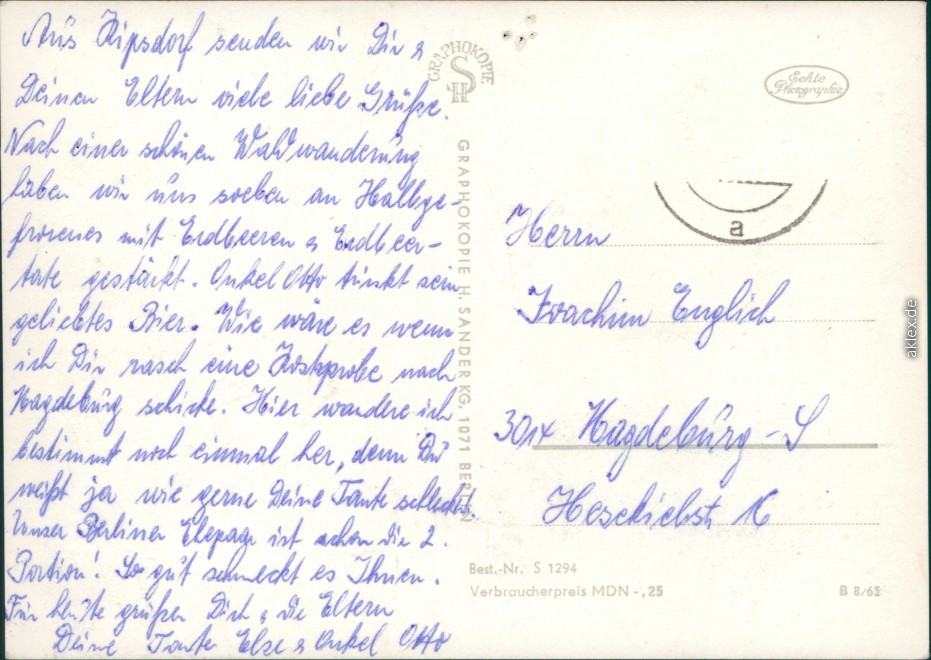 Aus Kipsdorf senden wir Dir &
Deinen Eltern viele liebe Grüße.
Nach einer schönen Waldwanderung
haben wir uns soeben an Halbge-
frorenes mit Erdbeeren & Erdbeer-
torte gestärkt. Onkel Otto trinkt sein
geliebtes Bier. Wie wäre es wenn
ich Dir rasch eine Kostprobe nach
Magdeburg schicke. Hier wandere ich
bestimmt noch einmal her, denn Du
weißt ja wie gerne Deine Tante schleckt.
Unser Berliner Ehepaar ist schon die 2.
Portion! So gut schmeckt es Ihnen.
Für heute grüßen Dich & die Eltern
Deine Tante Else & Onkel Otto
GRAPHOKOPIE
SH
GRAPHOKOPIE H. SANDER KG, 1071 BERLIN
Echte
Photographie
a
Herrn
Joachim Englich
3014 Magdeburg - S
Best.-Nr. S 1294
Verbraucherpreis MDN -,25
B 8/65
aklex.de